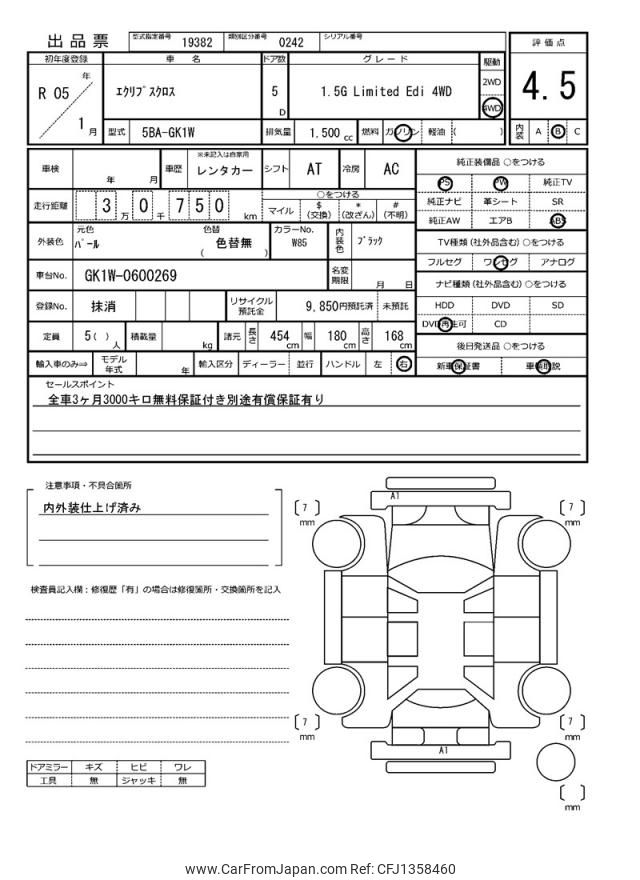 出品票 型式指定番号 19382 類別区分番号 0242 シリアル番号
評価点
4.5
初年度登録 車名 ドア数 グレード 駆動
R 05 年 1 月
エクリプスクロス 5 D 1.5G Limited Edi 4WD
2WD
4WD
型式 5BA-GK1W 排気量 1.500 cc 燃料 ガソリン 軽油 ( )
内装 A B C
車検 年 月 車歴 ※未記入は自家用 レンタカー シフト AT 冷房 AC
走行距離 3 万 0 千 7 5 0 km
○をつける
マイル $ (交換) * (改ざん) # (不明)
外装色 元色 パール 色替 色替無 ( ) カラーNo. W85 内装色 ブラック
車台No. GK1W-0600269 名変期限 月 日
登録No. 抹消 リサイクル預託金 9,850円預託済 未預託
定員 5( ) 人 積載量 kg 諸元 長さ 454 cm 幅 180 cm 高さ 168 cm
輸入車のみ⇒ モデル年式 年 輸入区分 ディーラー 並行 ハンドル 左 右
純正装備品 ○をつける
PS PW 純正TV
純正ナビ 革シート SR
純正AW エアB ABS
TV種類 (社外品含む) ○をつける
フルセグ ワンセグ アナログ
ナビ種類 (社外品含む) ○をつける
HDD DVD SD
DVD再生可 CD
後日発送品 ○をつける
新車保証書 車輌取説
セールスポイント
全車3ヶ月3000キロ無料保証付き別途有償保証有り
注意事項・不具合箇所
内外装仕上げ済み
検査員記入欄:修復歴「有」の場合は修復箇所・交換箇所を記入
A1
[ 7 ] mm
[ 7 ] mm
[ 7 ] mm
[ 7 ] mm
A1
[ ] mm
ドアミラー キズ ヒビ ワレ
工具 無 ジャッキ 無
www.CarFromJapan.com Ref: CFJ1358460